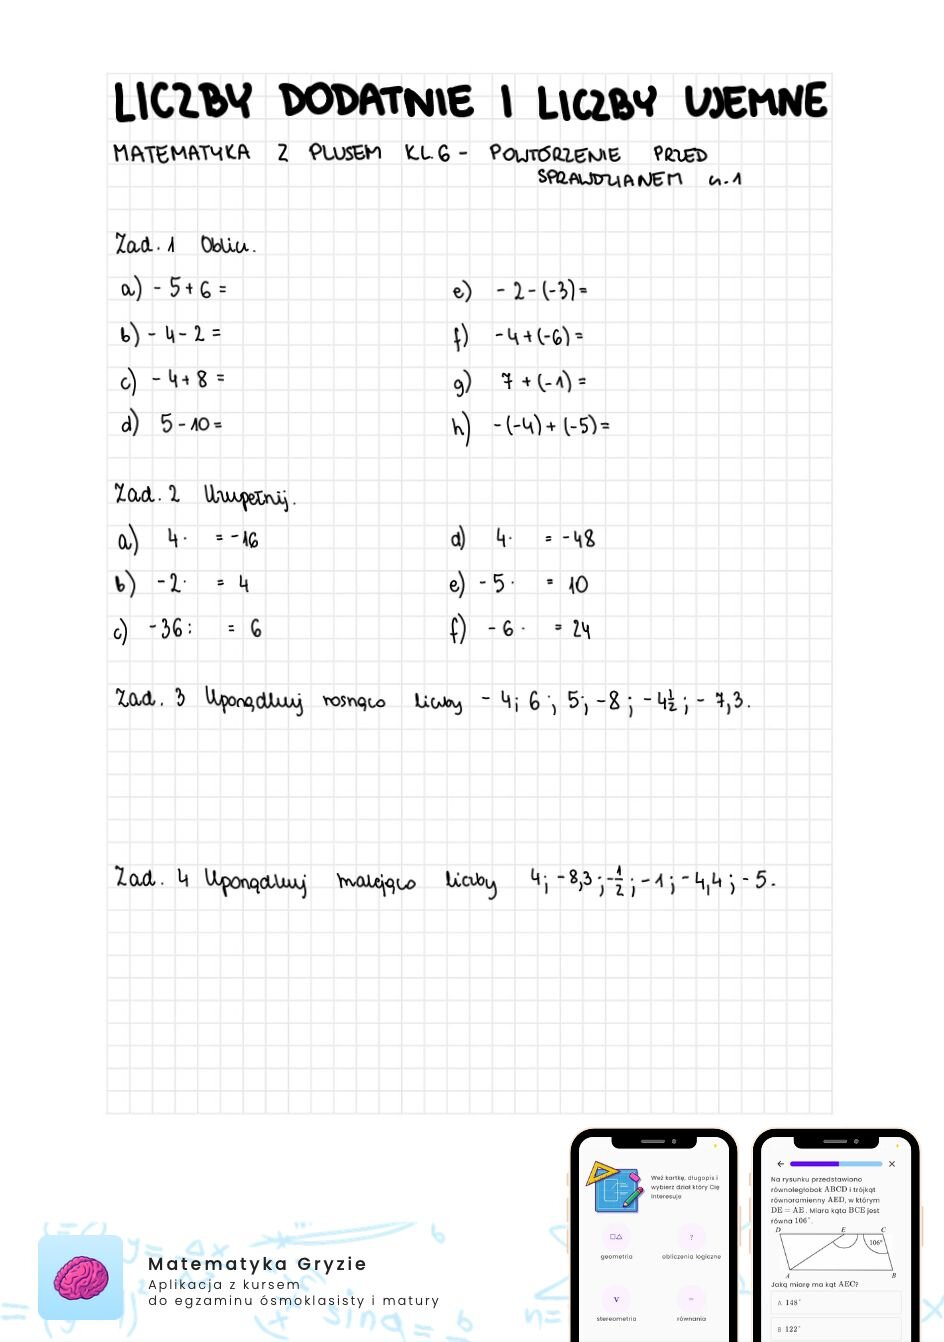 LICZBY DODATNIE I LICZBY UJEMNE
MATEMATYKA Z PLUSEM KL.6 - POWTÓRZENIE PRZED
SPRAWDZIANEM cz.1
Zad. 1 Oblicz.
a) - 5 + 6 =
b) - 4 - 2 =
c) - 4 + 8 =
d) 5 - 10 =
e) - 2 - (-3) =
f) - 4 + (-6) =
g) 7 + (-1) =
h) - (-4) + (-5) =
Zad. 2 Uzupełnij.
a) 4 · = -16
b) -2 · = 4
c) -36 : = 6
d) 4 · = -48
e) - 5 · = 10
f) - 6 · = 24
Zad. 3 Uporządkuj rosnąco liczby - 4; 6; 5; -8; -4½; - 7,3.
Zad. 4 Uporządkuj malejąco liczby 4; -8,3; -½; -1; -4,4; - 5.
Matematyka Gryzie
Aplikacja z kursem
do egzaminu ósmoklasisty i matury
Weź kartkę, długopis i
wybierz dział który Cię
interesuje
geometria
obliczenia logiczne
stereometria
równania
Na rysunku przedstawiono
równoległobok ABCD i trójkąt
równoramienny AED, w którym
DE = AE. Miara kąta BCE jest
równa 106°.
D E C
106°
A B
Jaką miarę ma kąt AEC?
A 148°
B 122°